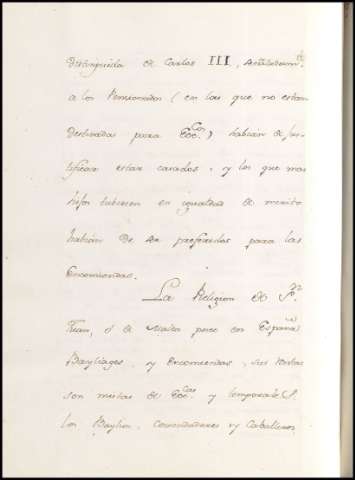 distinguida de Carlos III,
a los Pensionados (en las que no estan
destinadas para Ecc.cos) habian de jus-
tificar estar casados, y los que mas
hijos tubiesen en igualdad de merito
habian de ser preferidos para las
Encomiendas.
La Religion de S.n
Juan, ó de Malta posee en España
Bayliages, y Encomiendas, sus rentas
son mixtas de Ecc.cas y temporales.
los Baylios, Comendadores y Caballeros